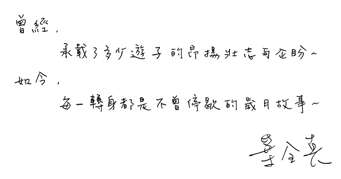 曾經，
承載了多少遊子的昂揚壯志與企盼~
如今，
每一轉身都是不曾停歇的歲月故事~
葉全真